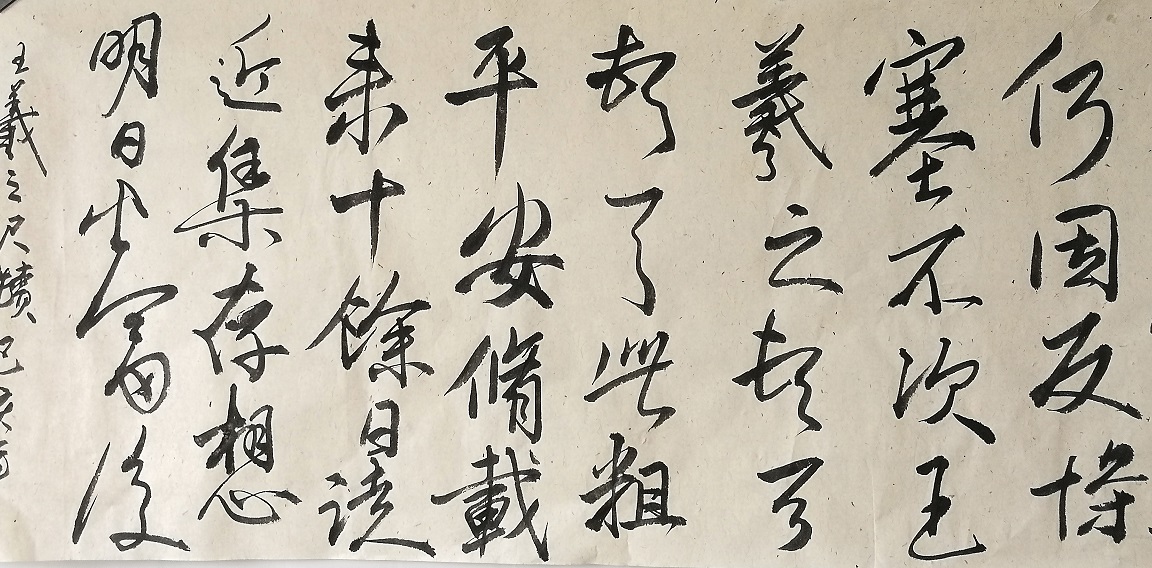 何因反
塞不次王
羲之頓首
此粗
平安脩載
来十餘日諸
近集存想
明日當復
王羲之尺牘己亥